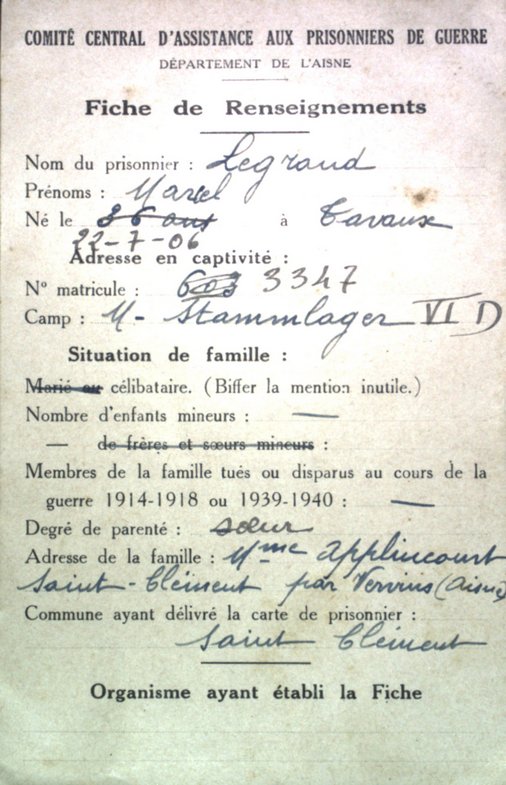 COMITÉ CENTRAL D'ASSISTANCE AUX PRISONNIERS DE GUERRE
DÉPARTEMENT DE L'AISNE
Fiche de Renseignements
Nom du prisonnier : Legrand
Prénoms : Marcel
Né le 36 ans à Tavaux
22-7-06
Adresse en captivité :
N° matricule : 603 3347
Camp : M - Stammlager VI D
Situation de famille :
Marié ou célibataire. (Biffer la mention inutile.)
Nombre d'enfants mineurs : —
— de frères et sœurs mineurs :
Membres de la famille tués ou disparus au cours de la
guerre 1914-1918 ou 1939-1940 : —
Degré de parenté : sœur
Adresse de la famille : Mme Applincourt
Saint-Clément par Vervins (Aisne)
Commune ayant délivré la carte de prisonnier :
Saint Clément
Organisme ayant établi la Fiche